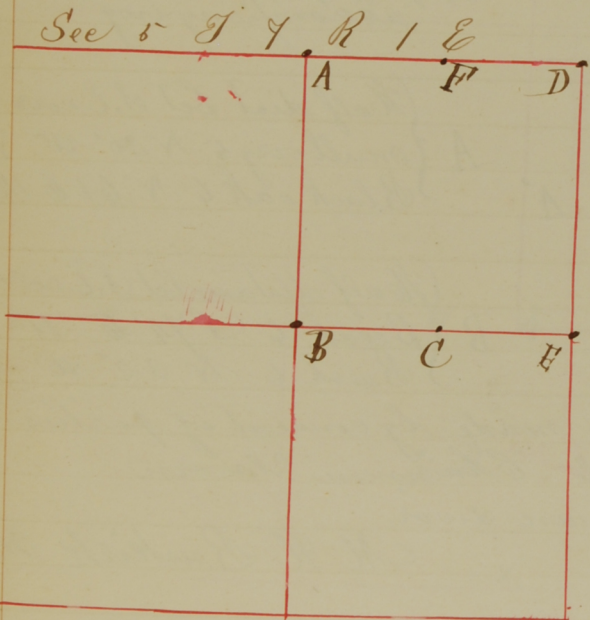 Sec 5 T 7 R 1 E
A F D
B C E